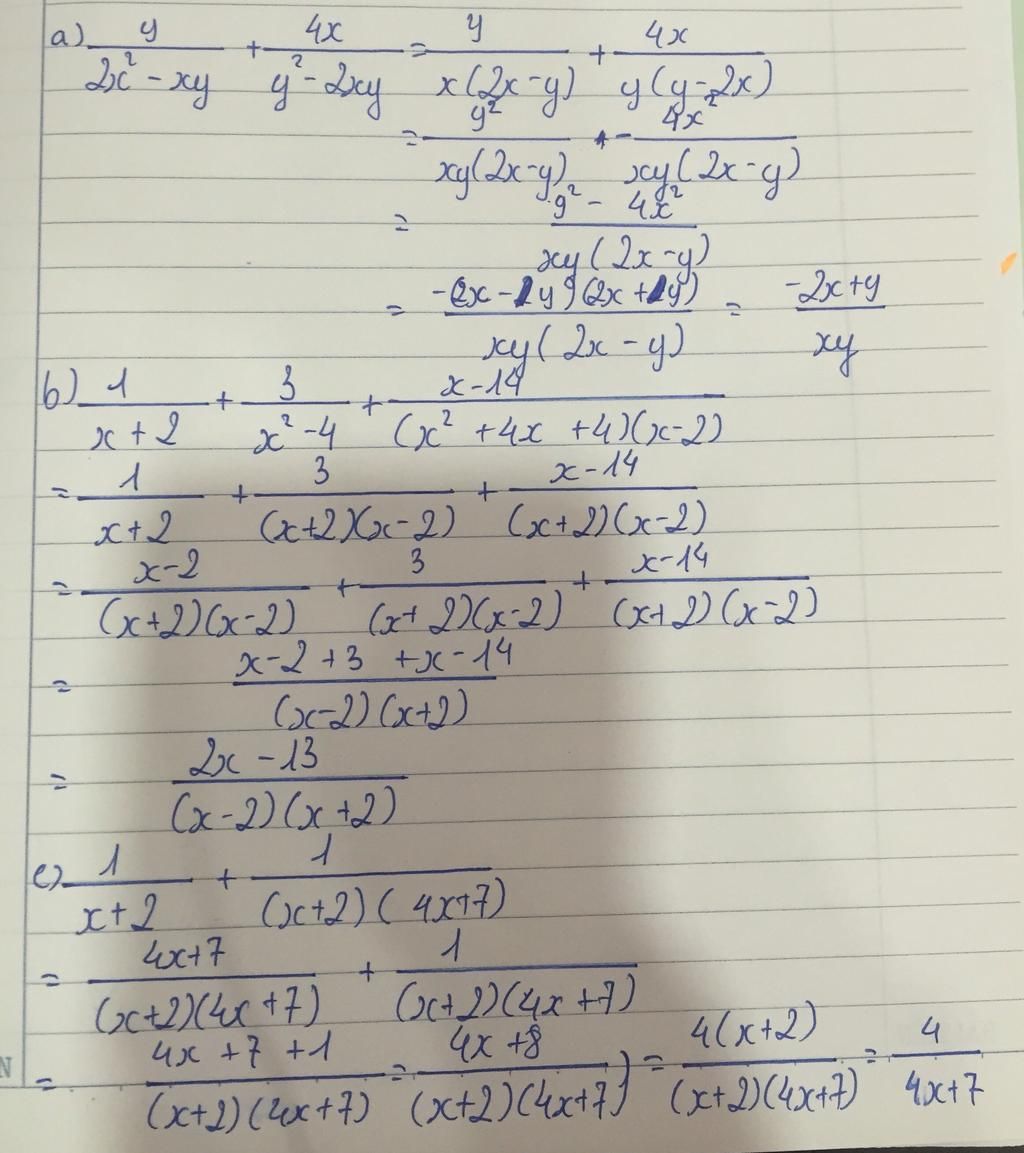 a) y/(2x² - xy) + 4x/(y² - 2xy) = y/(x(2x-y)) + 4x/(y(y-2x))
= y²/(xy(2x-y)) + - 4x²/(xy(2x-y))
= (y² - 4x²)/(xy(2x-y))
= (-(2x-y)(2x+y))/(xy(2x-y)) = (-2x+y)/(xy)
b) 1/(x+2) + 3/(x²-4) + (x-14)/((x²+4x+4)(x-2))
= 1/(x+2) + 3/((x+2)(x-2)) + (x-14)/((x+2)(x-2))
= (x-2)/((x+2)(x-2)) + 3/((x+2)(x-2)) + (x-14)/((x+2)(x-2))
= (x-2+3+x-14)/((x-2)(x+2))
= (2x-13)/((x-2)(x+2))
c) 1/(x+2) + 1/((x+2)(4x+7))
= (4x+7)/((x+2)(4x+7)) + 1/((x+2)(4x+7))
N
= (4x+7+1)/((x+2)(4x+7)) = (4x+8)/((x+2)(4x+7)) = (4(x+2))/((x+2)(4x+7)) = 4/(4x+7)